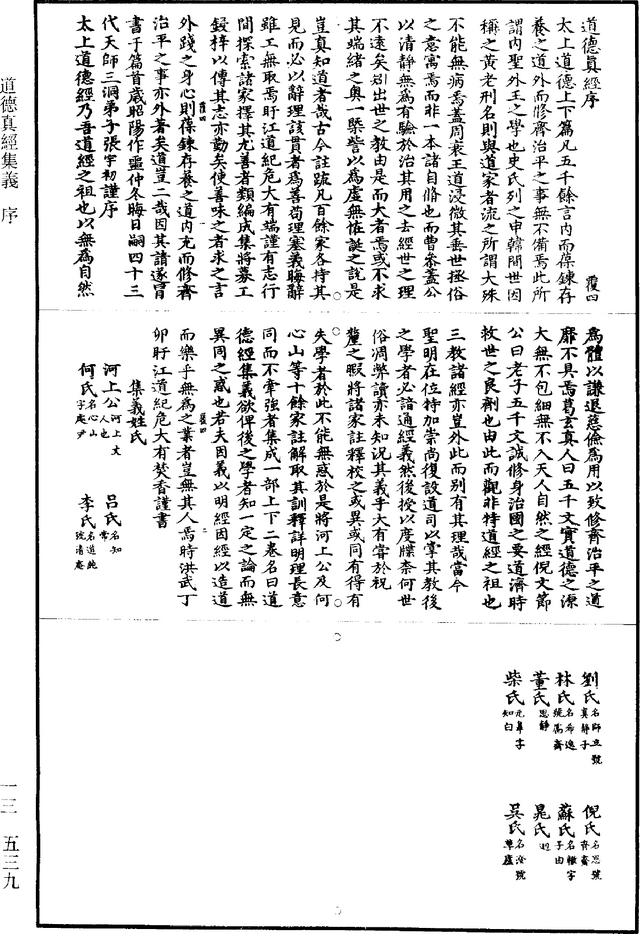 道德真經序
覆四
太上道德上下篇凡五千餘言內而葆鍊存
養之道外而修齊治平之事無不備焉此所
謂內聖外王之學也史氏列之申韓間世因
稱之黃老刑名則與道家者流之所謂大殊
不能無病焉蓋周衰王道浸微其垂世拯俗
之意寓焉而非一本諸自脩也而曹參蓋公
以清靜無為有驗於治其用之去經世之理
不遠矣別出世之教由是而大者焉或不求
其端緒之奧一槩訾以為虛無恠誕之說是
豈真知道者哉古今註䟽凡百餘家各持其
見而必以辭理該貫者為善苟理塞義晦辭
雖工無取焉盱江道紀危大有端謹有志行
間探索諸家擇其尤善者類編成集將募工
鋟梓以傳其志亦勤矣使善味之者求之言
外踐之身心則葆鍊存養之道內充而修齊
治平之事亦外著矣道豈二哉因其請遂冐
書于篇首歲昭陽作噩仲冬晦日嗣四十三
代天師三洞弟子張宇初謹序
太上道德經乃吾道經之祖也以無為自然
為體以謙退慈儉為用以致修齊治平之道
靡不具焉葛玄真人曰五千文實道德之源
大無不包細無不入天人自然之經倪文節
公曰老子五千文誠修身治國之要道濟時
救世之良劑也由此而觀非特道經之祖也
三教諸經亦豈外此而別有其理哉當今
聖明在位特加崇尚復設道司以掌其教後
之學者必諳通經義然後授以度牒柰何世
俗凋弊讀亦未知況其義乎大有甞於祝
釐之暇將諸家註釋校之或異或同有得有
失學者於此不能無惑於是將河上公及何
心山等十餘家註解取其訓釋詳明理長意
同而不牽強者集成一部上下二卷名曰道
德經集義欲俾後之學者知一定之論而無
異同之惑也若夫因義以明經因經以造道
而樂乎無為之業者豈無其人焉時洪武丁
卯盱江道紀危大有焚香謹書
集義姓氏
河上公 河上丈人也
呂氏 名知常
何氏 名心山字庵尹
李氏 名道純號清庵
劉氏 名師立號真靜子
倪氏 名思號齊齋
林氏 名希逸號鬳齋
蘇氏 名轍字子由
董氏 思靜
晁氏 迥
柴氏 元皐字知白
吳氏 名澄號草廬
道德真經集義 序
一三 五三九